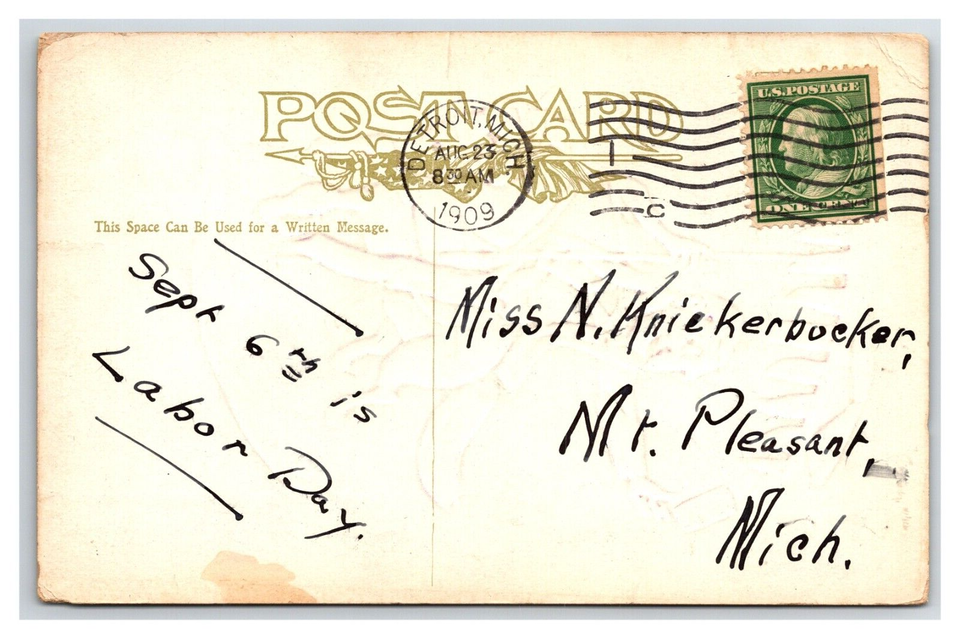 POST CARD
DETROIT, MICH.
AUG 23
8 30 AM
1909
U.S. POSTAGE
ONE CENT
This Space Can Be Used for a Written Message.
Sept 6th is
Labor Day.
Miss N. Knickerbocker,
Mt. Pleasant,
Mich.